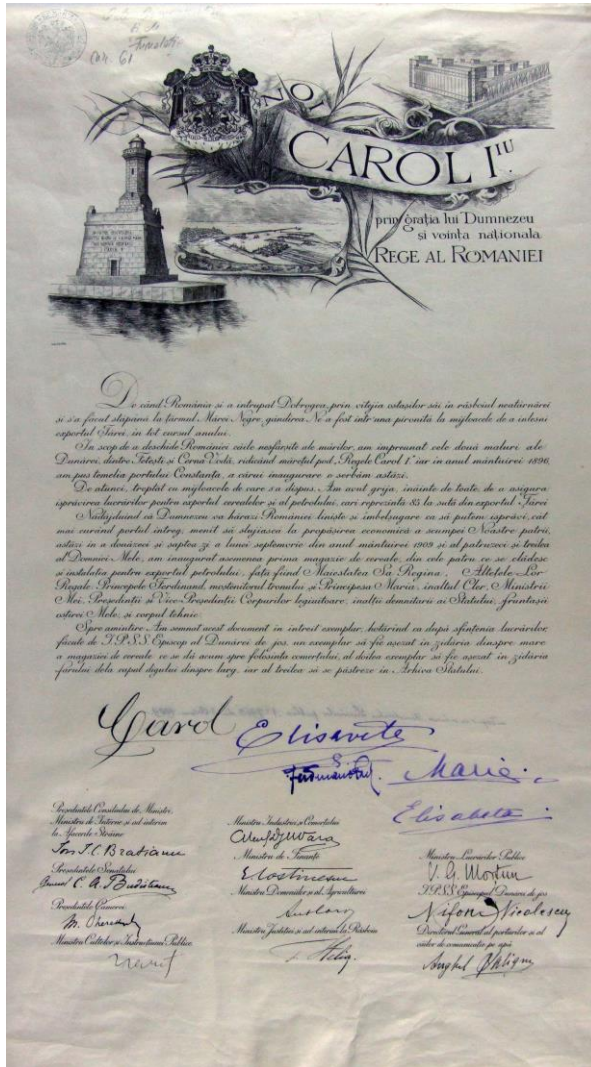 Cor. 61
NOI
CAROL I IU
prin grația lui Dumnezeu
și voința națională
REGE AL ROMANIEI
De când România și-a întrupat Dobrogea, prin vitejia ostașilor săi în răsboiul neatârnărei
și s'a făcut stăpână la țărmul Mărei Negre, gândirea Ne-a fost într'una pironită la mijloacele de a înlesni
exportul Țărei, în tot cursul anului.
In scop de a deschide României căile nesfârșite ale mărilor, am împreunat cele două maluri ale
Dunărei, dintre Fetești și Cerna-Vodă, ridicând mărețul pod „Regele Carol I" iar în anul mântuirei 1896
am pus temelia portului Constanța, a cărei inaugurare o serbăm astăzi.
De atunci, treptat cu mijloacele de care s'a dispus, Am avut grija, înainte de toate, de a asigura
isprăvirea lucrărilor pentru exportul cerealelor și al petrolului, cari reprezintă 85 la sută din exportul Țărei
Nădăjduind că Dumnezeu va hărăzi României liniște și îmbelșugare ca să putem isprăvi, cât
mai curând portul întreg, menit să slujiasca la propășirea economică a scumpei Noastre patrii,
astăzi în a douăzeci și șaptea zi a lunei septemvrie din anul mântuirei 1909 și al patruzeci și treilea
al Domniei Mele, am inaugurat asemenea prima magazie de cereale, din cele patru ce se clădesc
și instalația pentru exportul petrolului, față fiind Maiestatea Sa Regina, Altețele Lor
Regale Principele Ferdinand, moștenitorul tronului și Principesa Maria, înaltul Cler, Miniștrii
Mei, Președinții și Vice-Președinții Corpurilor legiuitoare, înalții demnitari ai Statului, fruntașii
oștirei Mele, și corpul tehnic.
Spre amintire Am semnat acest document în întreit exemplar, hotărînd ca după sfințenia lucrărilor,
făcute de I.P.S.S Episcop al Dunărei de jos, un exemplar să fie așezat în zidăria dinspre mare
a magaziei de cereale ce se dă acum spre folosința comerțului, al doilea exemplar să fie așezat în zidăria
farului dela capul digului dinspre larg, iar al treilea să se păstreze în Arhiva Statului.
Carol
Elisaveta
Ferdinand
Maria
Elisabeta
Președintele Consiliului de Miniștri,
Ministru de Interne și ad-interim
la Afacerile Străine
Ion I. C. Bratianu
Președintele Senatului
General C. A. Budisteanu
Președintele Camerei
M. Pherekyde
Ministru Cultelor și Instrucțiunii Publice
Haret
Ministru Industriei și Comerțului
Alex. Djuvara
Ministru de Finanțe
E. Costinescu
Ministru Domeniilor și al Agriculturei
Ministru Justiției și ad-interim la Răsboiu
Ministru Lucrărilor Publice
V. G. Morțun
I.P.S.S. Episcopul Dunărei de jos
Nifon Nicolescu
Directorul General al porturilor și al
căilor de comunicație pe apă
Anghel Saligny